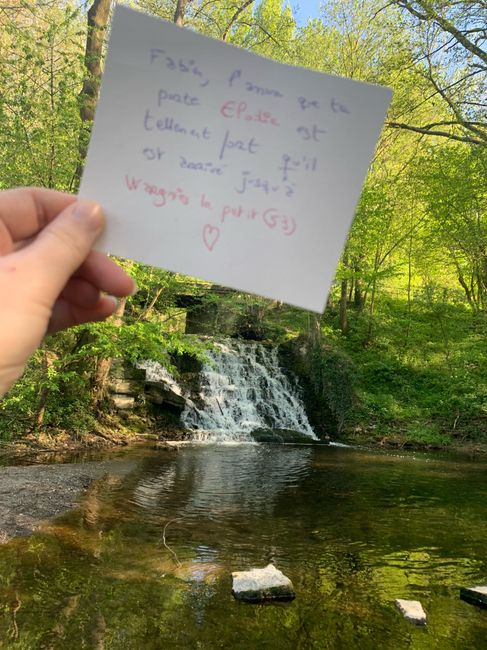 Fabin, l'amour que te
porte Elodie est
tellement fort qu'il
est arrivé jusqu'à
la petit (53)
♡